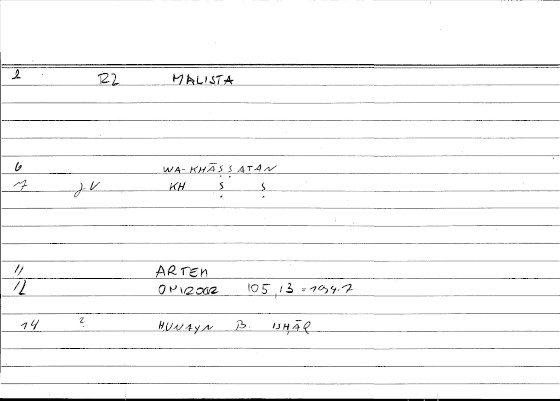 1 R2 MALISTA
6 WA-KHĀṢṢATAN
7 J.V KH Ṣ Ṣ
11 ARTEM
12 105,13 = 194.7
14 ? HUNAYN B. ISḤĀQ